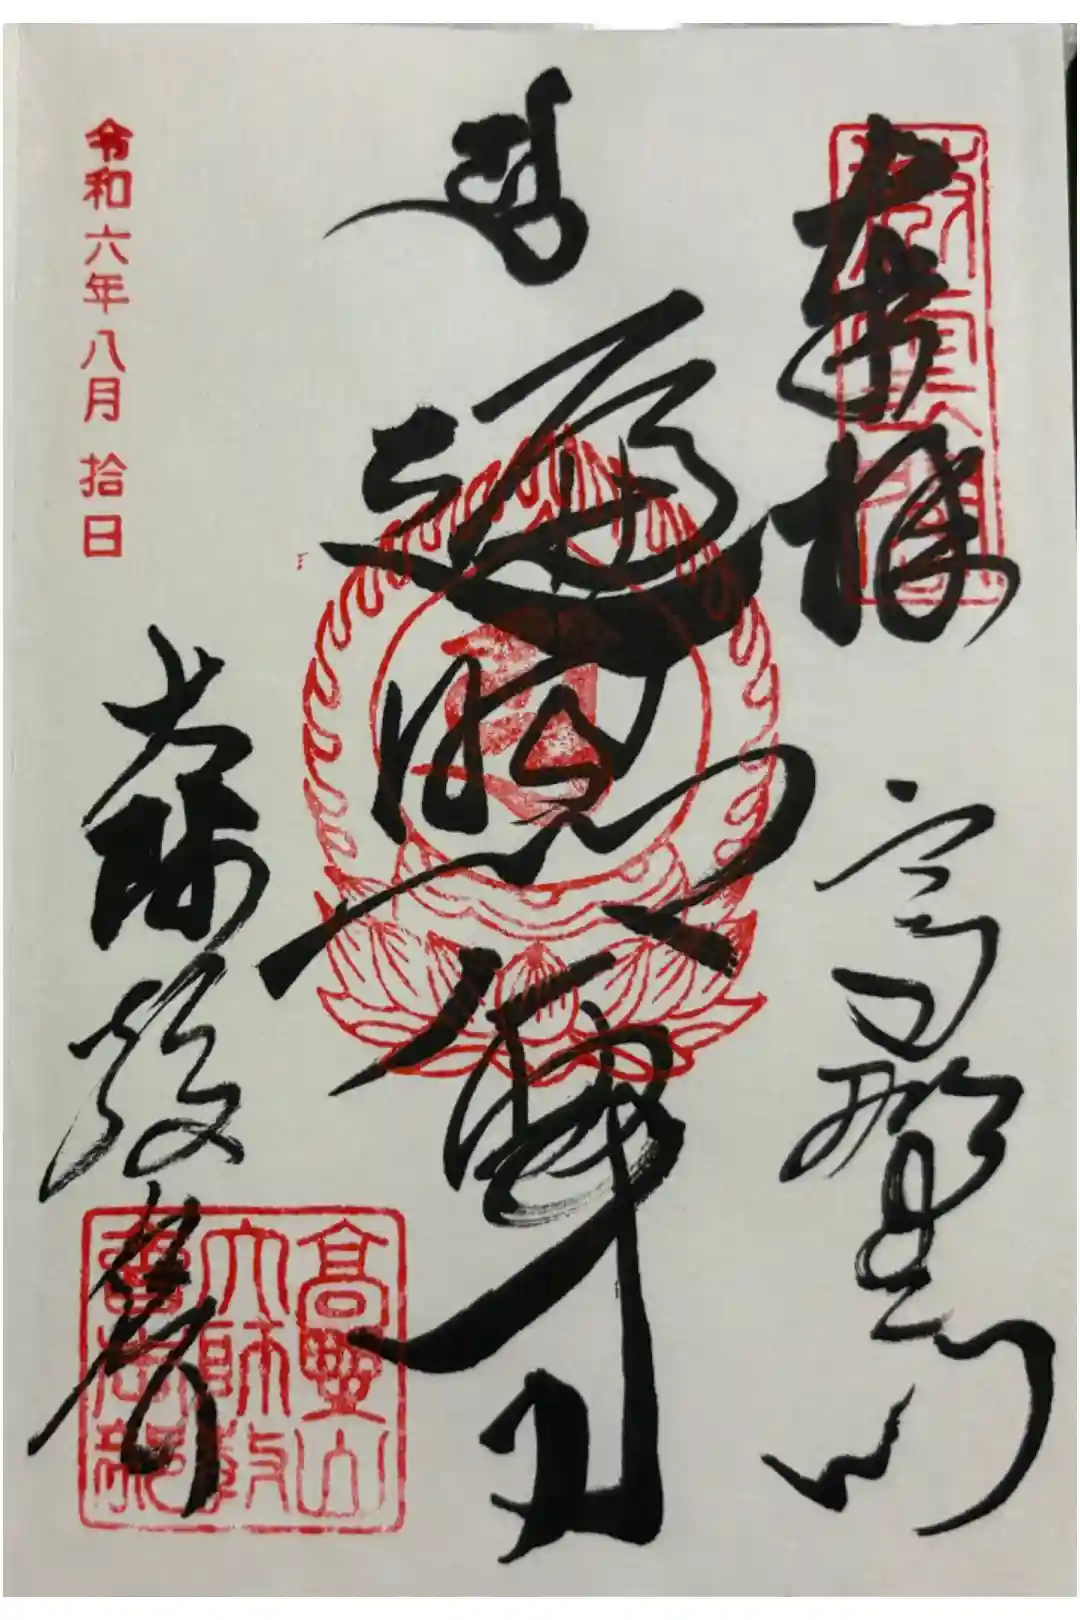 奉拝
高野山
遍照尊
大師教会
令和六年八月拾日
高野山
大師教
會本部